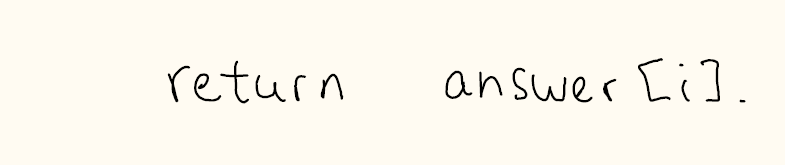 return answer[i].